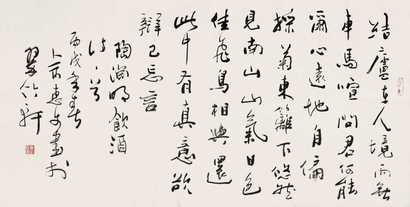 結廬在人境而無
車馬喧問君何能
爾心遠地自偏
採菊東籬下悠然
見南山山氣日
佳飛鳥相與還
此中有真意欲
辯已忘言
陶淵明飲酒
詩
丙戌年春
於
翠竹軒